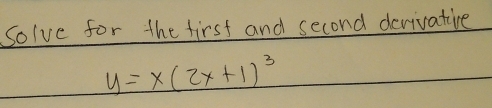 Solve for the first and second derivative
y = x(2x+1)³